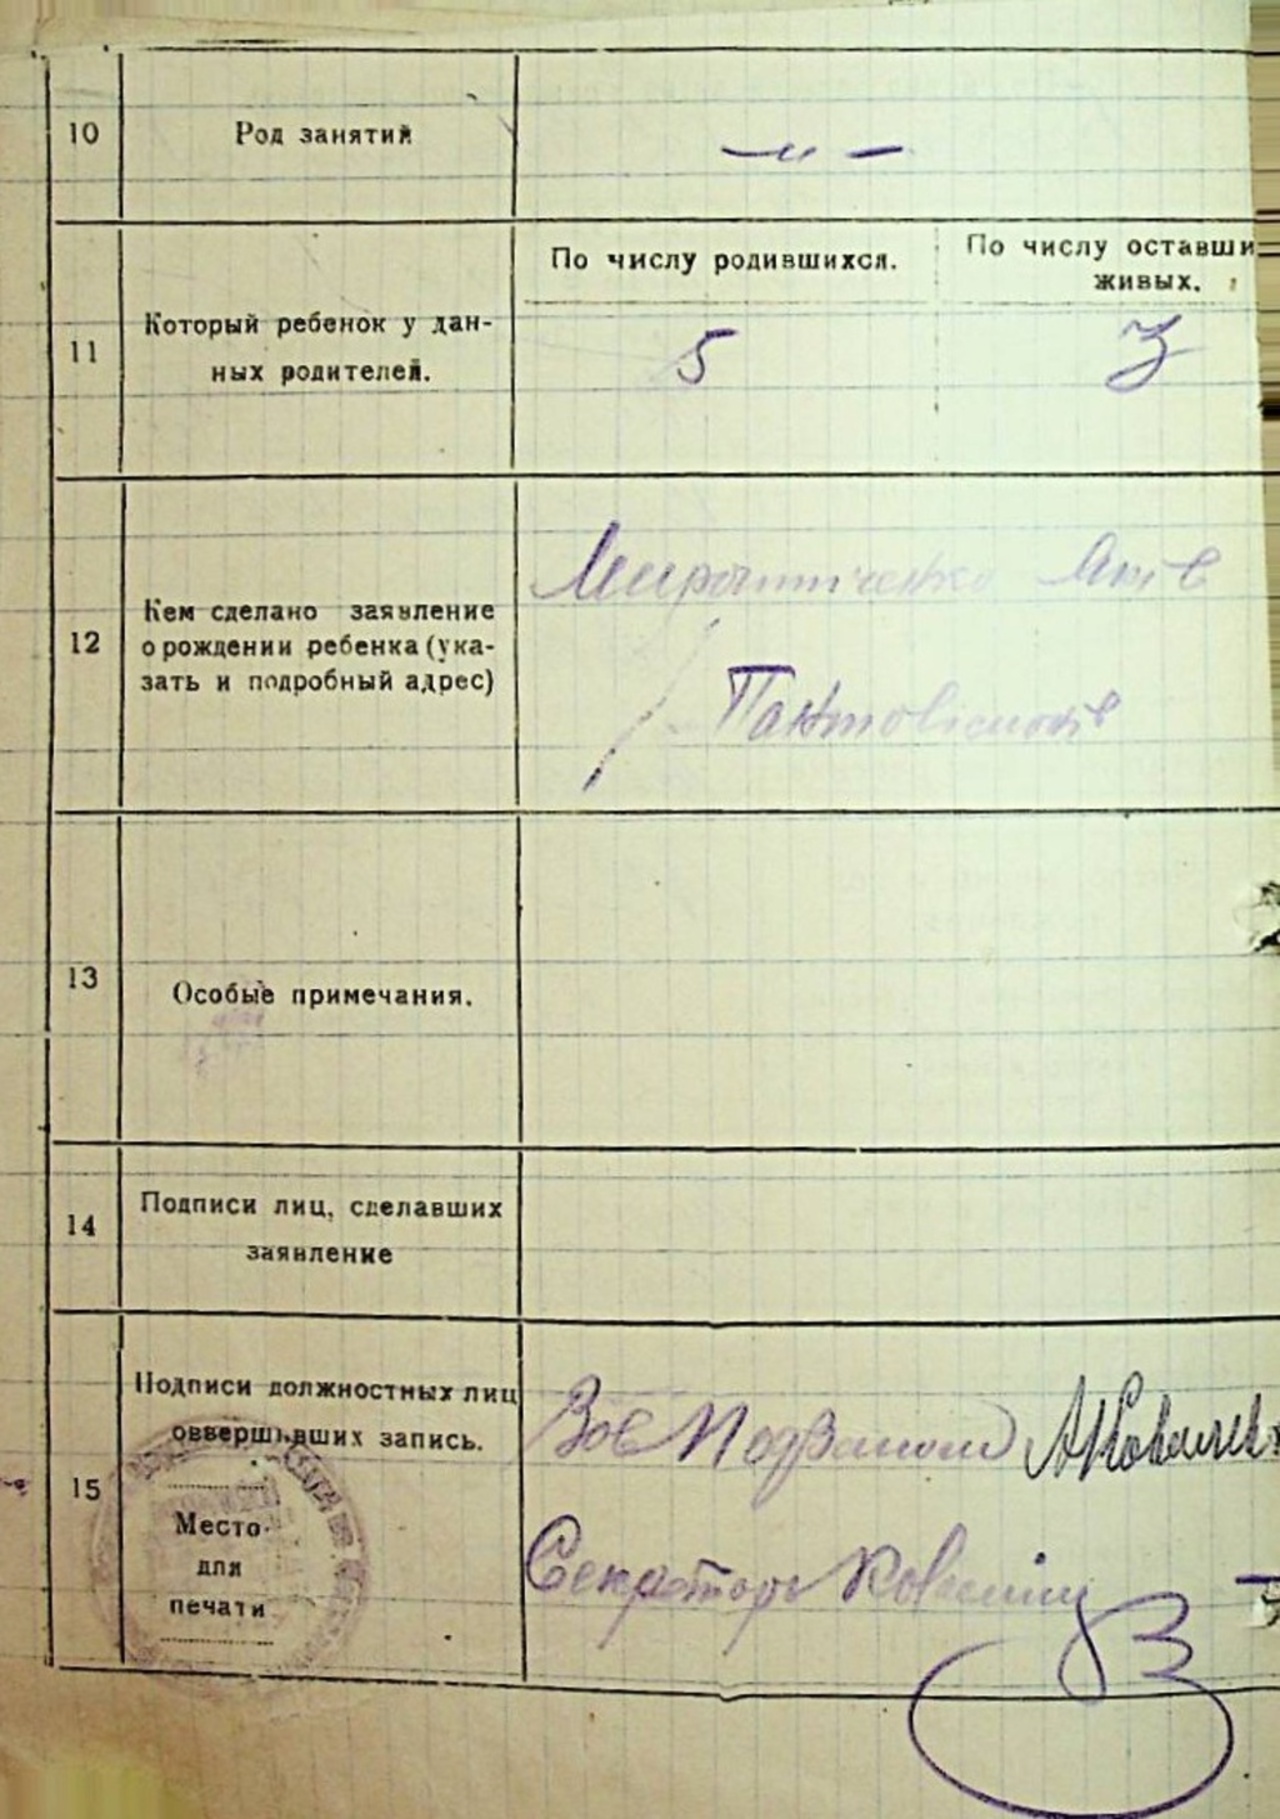 10
Род занятий
— „ —
11
Который ребенок у дан-
ных родителей.
По числу родившихся.
По числу оставши
живых.
5
3
12
Кем сделано заявление
о рождении ребенка (ука-
зать и подробный адрес)
Мирошниченко Яків
13
Особые примечания.
14
Подписи лиц, сделавших
заявление
15
Подписи должностных лиц
оввершивших запись.
Место
для
печати
Зав
Секретарь